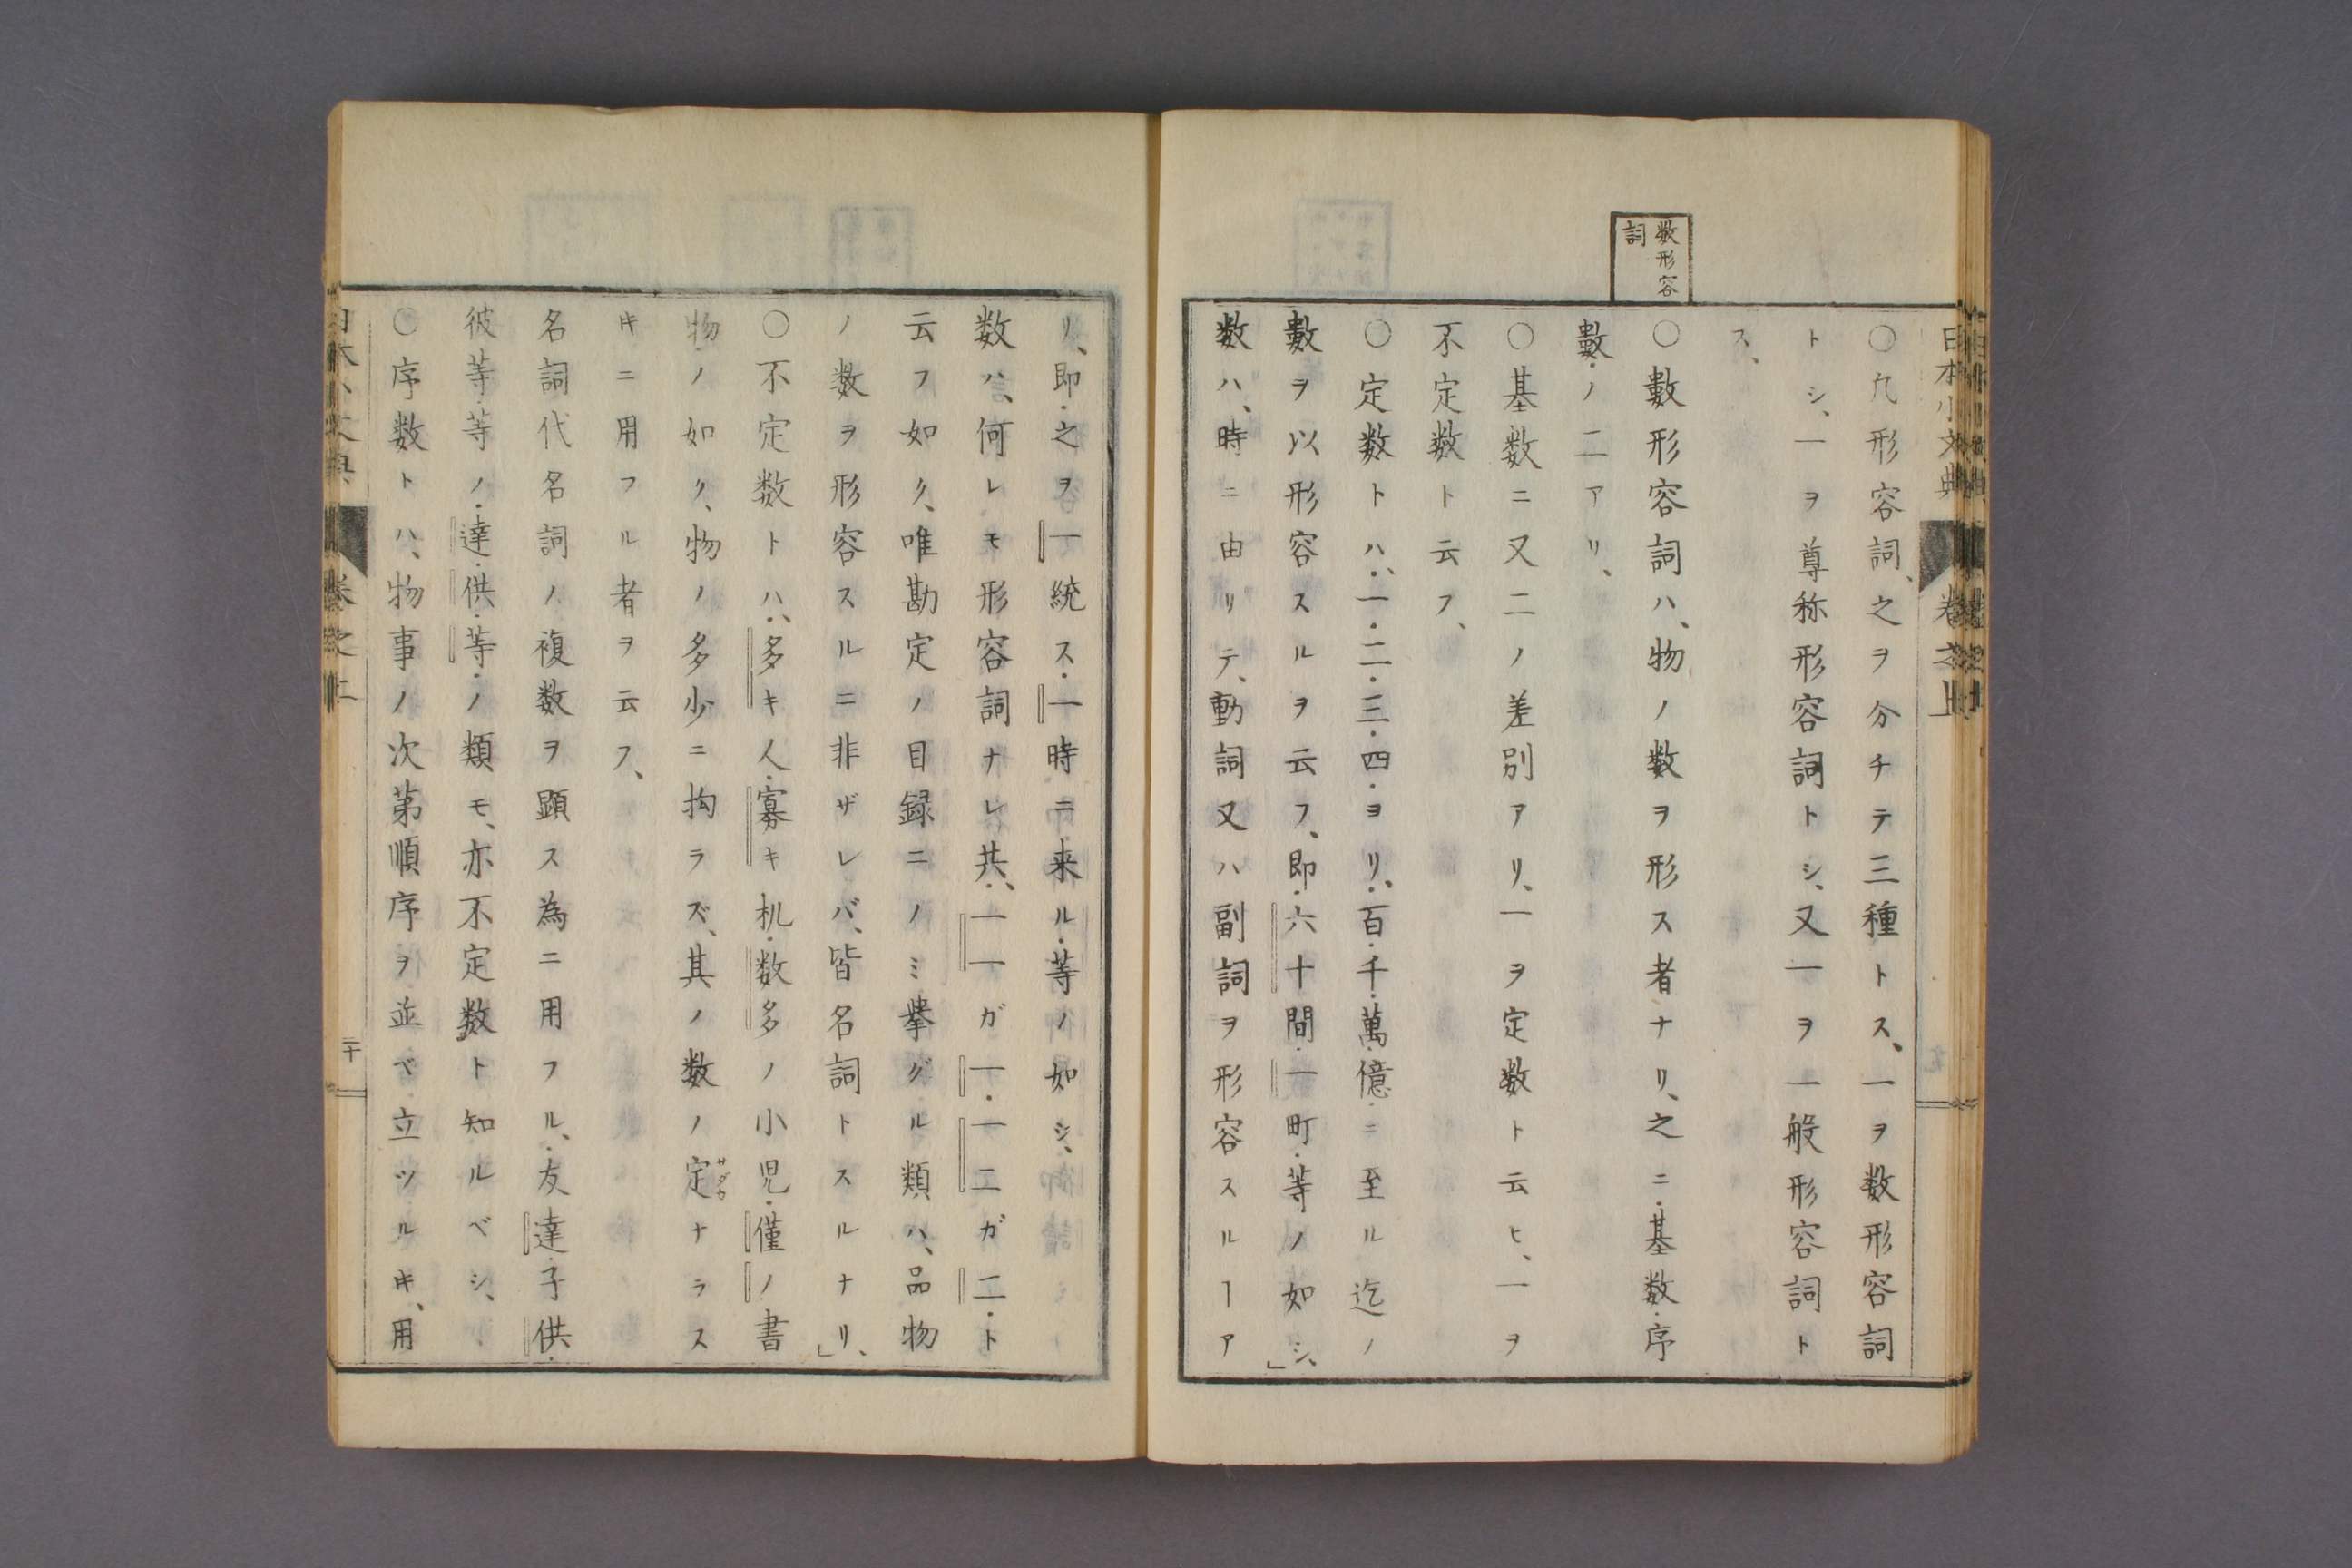 日本小文典 卷之上
数形容
詞
○凢形容詞、之ヲ分チテ三種トス、一ヲ数形容詞
トシ、一ヲ尊称形容詞トシ、又一ヲ一般形容詞ト
ス、
○數形容詞ハ、物ノ数ヲ形ス者ナリ、之ニ・基数・序
數・ノ二アリ、
○基数ニ又二ノ差別アリ、一ヲ定数ト云ヒ、一ヲ
不定数ト云フ、
○定数トハ、・一・二・三・四・ヨリ、・百・千・萬・億・ニ至ル迄ノ
數ヲ以形容スルヲ云フ、即・六十間・一町・等ノ如シ、」
数ハ、時ニ由リテ、動詞又ハ副詞ヲ形容スルヿア
リ、即・之ヲ一統ス・一時ニ来ル・等ノ如シ、
数ハ、何レモ形容詞ナレ共、・一一ガ一・一二ガ二・ト
云フ如ク、唯勘定ノ目録ニノミ擧グル類ハ、品物
ノ数ヲ形容スルニ非ザレバ、皆名詞トスルナリ、」
○不定数トハ、・多キ人・寡キ机・数多ノ小児・僅ノ書
物・ノ如ク、物ノ多少ニ拘ラズ、其ノ数ノ定サダカナラス
キニ用フル者ヲ云フ、
名詞代名詞ノ複数ヲ顕ス為ニ用フル、・友達・子供・
彼等・等ノ・達・供・等・ノ類モ、亦不定数ト知ルベシ、
○序数トハ、物事ノ次第順序ヲ並ベ立ツルキ、用
日本小文典 卷之上 二十